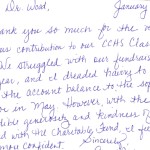 Dr. Wood, January
ank you so much for the
us contribution to our CCHS Clas
We struggled with our fundrais
year, and I dreaded having to
the account balance to the sop
or in May. However, with the
dible generosity and kindness of
d with the Charitable Fund, I fe
more confident. Sincerely,